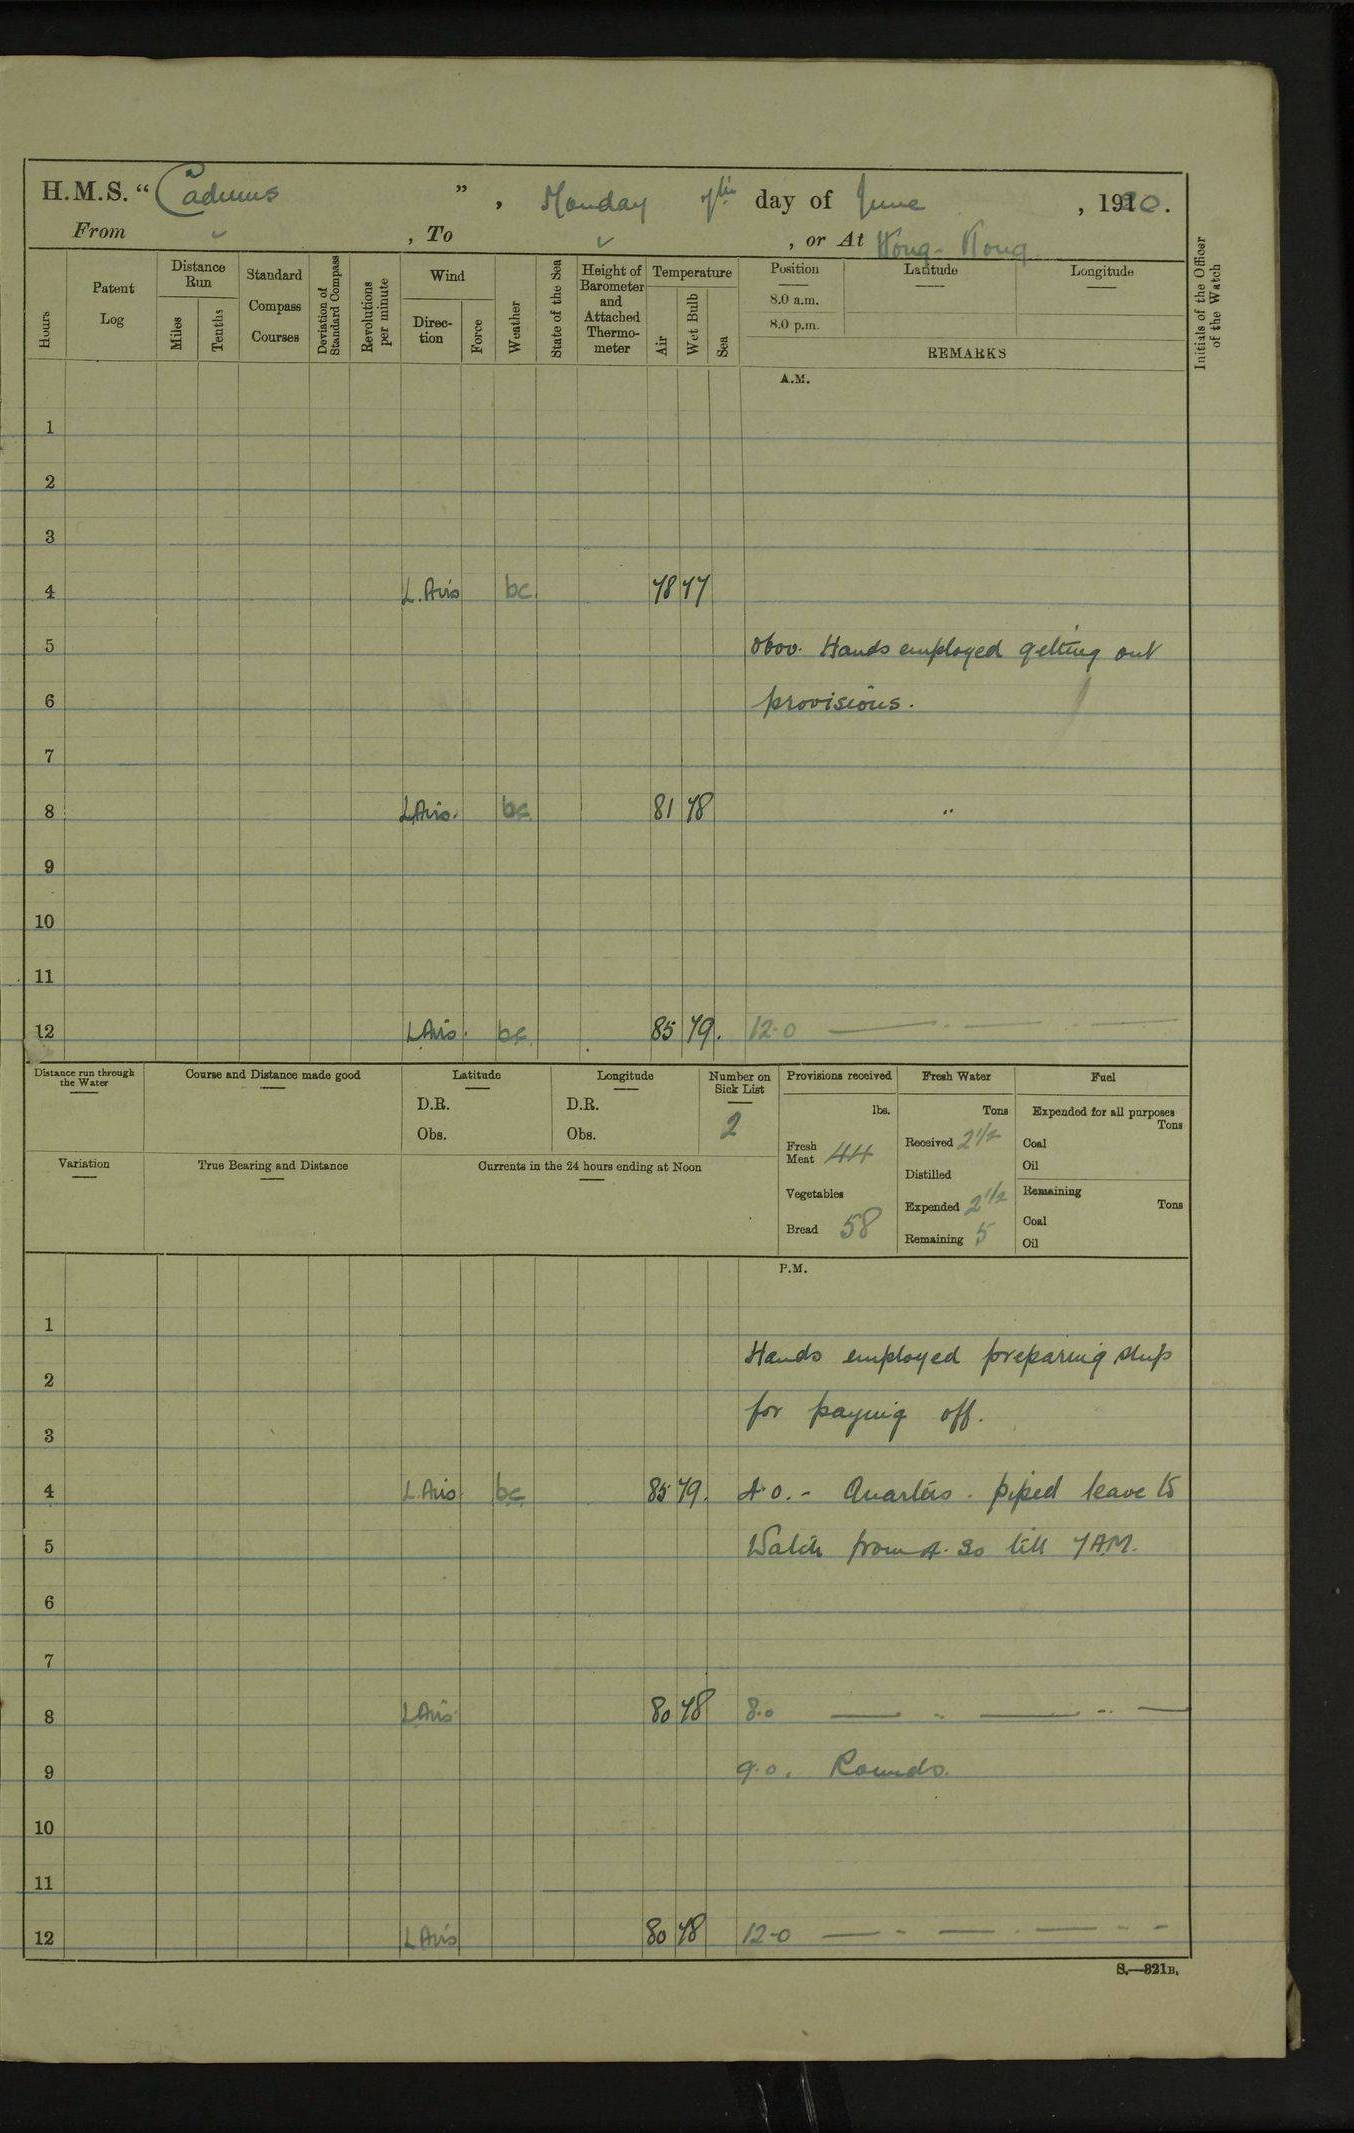 H.M.S. “Cadmus”, Monday 7th day of June, 1920.
From ✓, To ✓, or At Hong-Kong
Hours
Patent Log
Distance Run
Miles
Tenths
Standard Compass Courses
Deviation of Standard Compass
Revolutions per minute
Wind
Direc-tion
Force
Weather
State of the Sea
Height of Barometer and Attached Thermo-meter
Temperature
Air
Wet Bulb
Sea
Position
8.0 a.m.
8.0 p.m.
Latitude
Longitude
REMARKS
Initials of the Officer of the Watch
A.M.
1
2
3
4 L.Airs bc. 78 77
5 0600. Hands employed getting out
6 provisions.
7
8 L.Airs. bc. 81 78 "
9
10
11
12 L.Airs. bc. 85 79. 12.0
Distance run through the Water
Course and Distance made good
Latitude
D.R.
Obs.
Longitude
D.R.
Obs.
Number on Sick List
2
Provisions received
lbs.
Fresh Meat 44
Vegetables
Bread 58
Fresh Water
Tons
Received 2 1/2
Distilled
Expended 2 1/2
Remaining 5
Fuel
Expended for all purposes
Tons
Coal
Oil
Remaining
Tons
Coal
Oil
Variation
True Bearing and Distance
Currents in the 24 hours ending at Noon
P.M.
1
Hands employed preparing ship
2
for paying off.
3
4 L.Airs. bc. 85 79. 4.0. - Quarters. piped leave to
5 Watch from 4.30 till 7 AM.
6
7
8 L.Airs. 80 78 8.0
9 9.0. Rounds.
10
11
12 L.Airs 80 78 12.0
S.—321B.